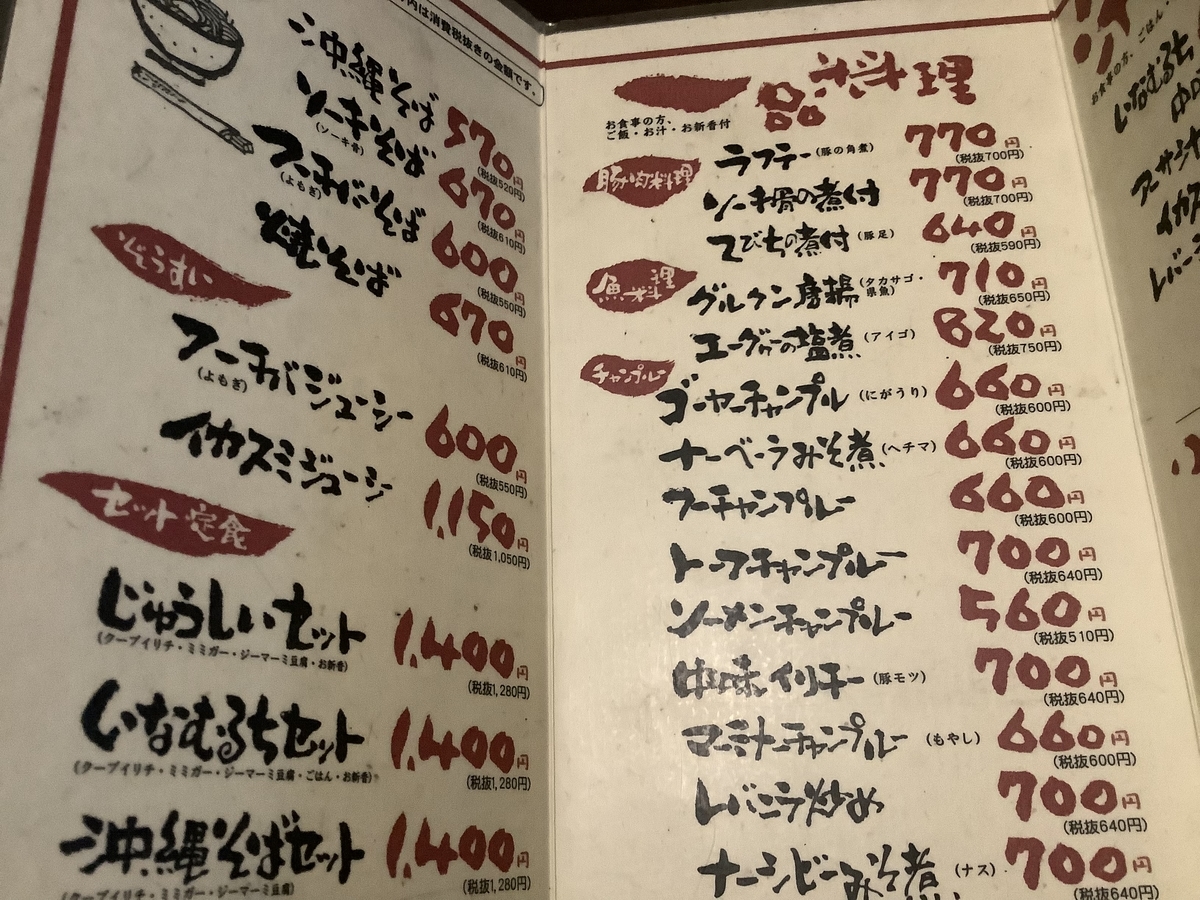 内は消費税抜きの金額です。
沖縄そば 570円
(税抜520円)
ソーキそば 670円
(ソーキ骨) (税抜610円)
フーチバそば 600円
(よもぎ) (税抜550円)
焼そば 670円
(税抜610円)
ぞうすい
フーチバジューシー 600円
(よもぎ) (税抜550円)
イカスミジューシー 1,150円
(税抜1,050円)
セット定食
じゅうしぃセット 1,400円
(クーブイリチ・ミミガー・ジーマーミ豆腐・お新香) (税抜1,280円)
いなむるちセット 1,400円
(クーブイリチ・ミミガー・ジーマーミ豆腐・ごはん・お新香) (税抜1,280円)
沖縄そばセット 1,400円
(クーブイリチ・ミミガー・ジーマーミ豆腐) (税抜1,280円)
一品料理
お食事の方、
ご飯・お汁・お新香付
豚肉料理
ラフテー (豚の角煮) 770円
(税抜700円)
ソーキ骨の煮付 770円
(税抜700円)
てびちの煮付 (豚足) 640円
(税抜590円)
魚料理
グルクン唐揚 (タカサゴ・県魚) 710円
(税抜650円)
エーグヮーの塩煮 (アイゴ) 820円
(税抜750円)
チャンプルー
ゴーヤーチャンプル (にがうり) 660円
(税抜600円)
ナーベーラみそ煮 (ヘチマ) 660円
(税抜600円)
フーチャンプルー 660円
(税抜600円)
トーフチャンプルー 700円
(税抜640円)
ソーメンチャンプルー 560円
(税抜510円)
中味イリチー (豚モツ) 700円
(税抜640円)
マーミナーチャンプルー (もやし) 660円
(税抜600円)
レバニラ炒め 700円
(税抜640円)
ナーシビーみそ煮 (ナス) 700円
(税抜640円)
お食事の方、ごはん・
いなむるち
アーサ
イカス
レバー